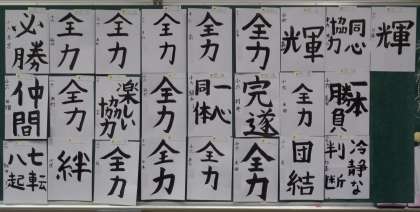 必勝
全力
全力
全力
全力
全力
輝
同心
協力
輝
仲間
全力
楽しい
協力
全力
一心
同体
完遂
全力
一本
勝負
七転
八起
絆
全力
全力
全力
全力
団結
冷静な
判断